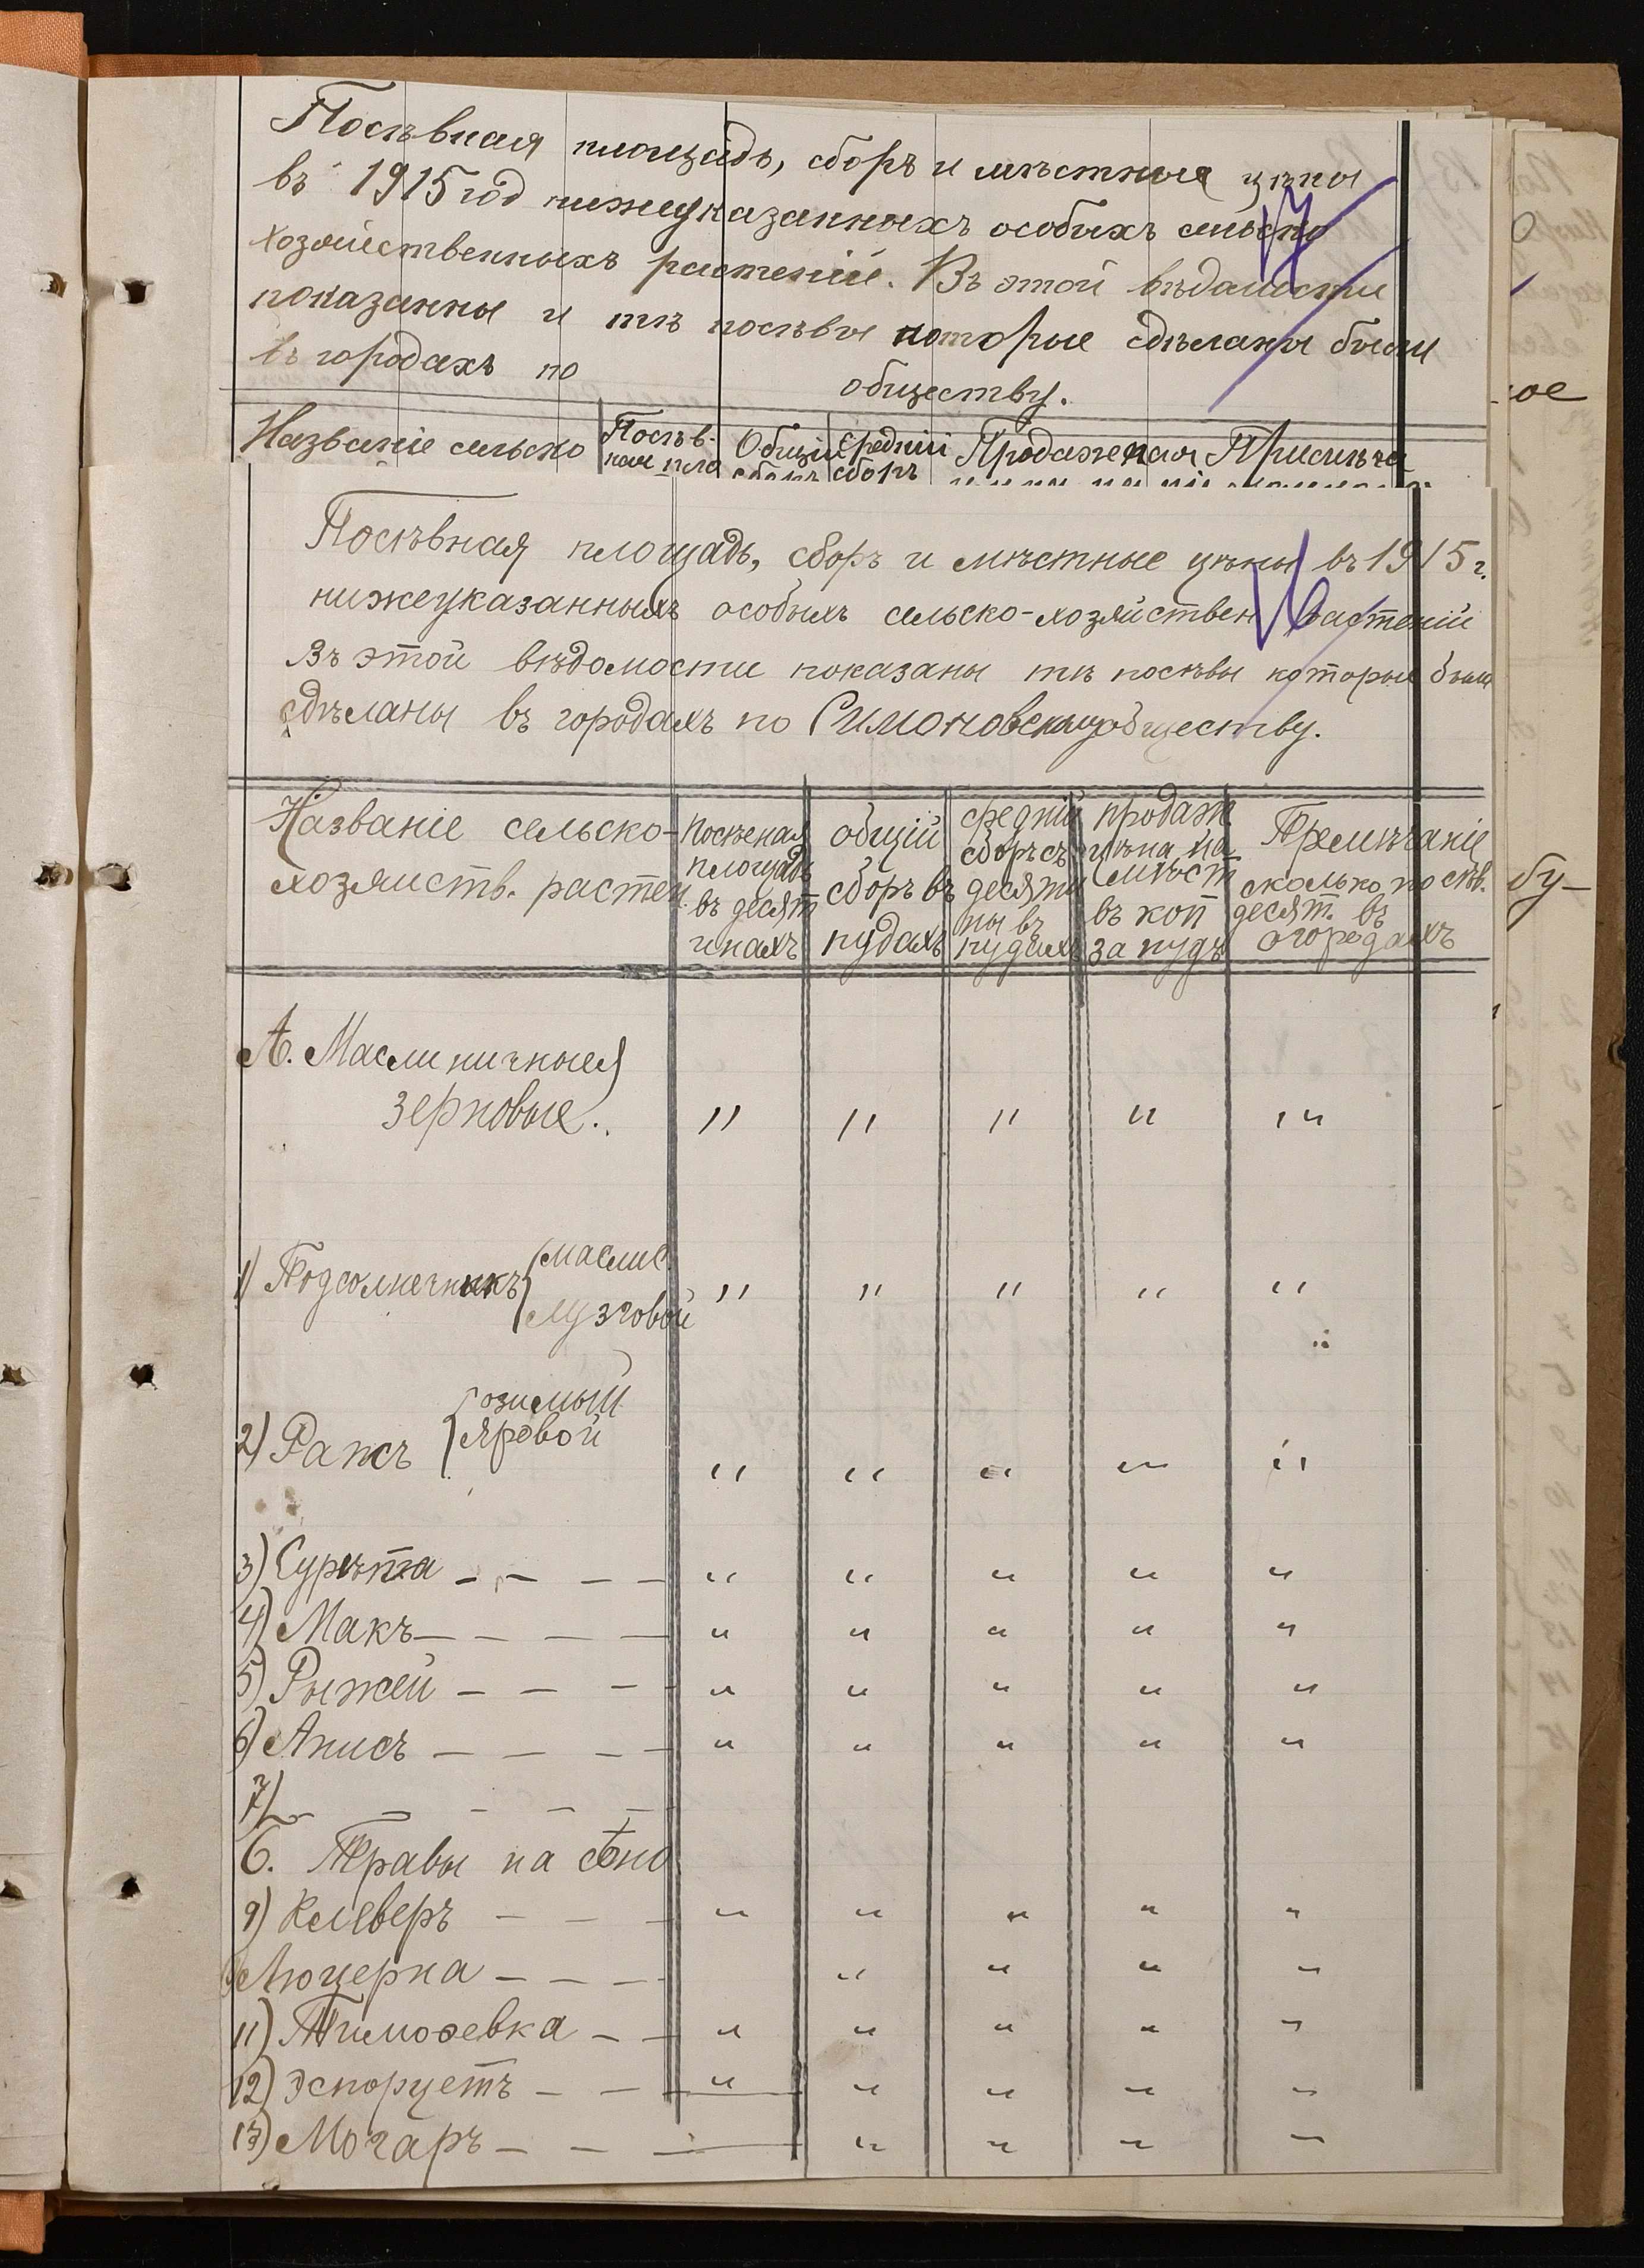 Посѣвная площадь, сборъ и мѣстныя цѣны
въ 1915 год нижеуказанныхъ особыхъ сельско
хозяйственныхъ растеній. Въ этой вѣдамости
показанны и тѣ посѣвы которые сдѣланы были
въ городахъ по обществу.
17
Названіе сельско
Посѣв-
ная пло
Общій
сборъ
Средній
сборъ
Продажная
Посѣвная площадь, сборъ и мѣстные цѣны въ 1915 г.
нижеуказанныхъ особыхъ сельско-хозяйствен растеній
Въ этой вѣдомости показаны тѣ посѣвы которые были
сдѣланы въ городахъ по Симоновскому обществу.
16
Названіе сельско-
хозяиств. растен.
посѣеная
площадь
въ десят
инахъ
общій
сборъ въ
пудахъ
средній
сборъ съ
десяти
ны въ
пудахъ
продаж
цѣна на
мѣст
въ коп
за пудъ
Премѣчаніе
сколько по сѣв.
десят. въ
огородахъ
А. Масличныя
зерновые. " " " " "
1) Подсолнечникъ { маслис.
лузговой " " " " "
"
2) Рапсъ { озимый
яровой " " " " "
3) Сурѣпа - - - - " " " " "
4) Макъ - - - - " " " " "
5) Рыжей - - - " " " " "
6) Анисъ - - - - " " " " "
7) - - - -
Б. Травы на сѣно
9) Клеверъ - - - " " " " "
Люцерна - - - " " " "
11) Тимоѳевка - - " " " " "
12) Эспорцетъ - - " " " " "
13) Могаръ - - - " " " "
ое
бу-